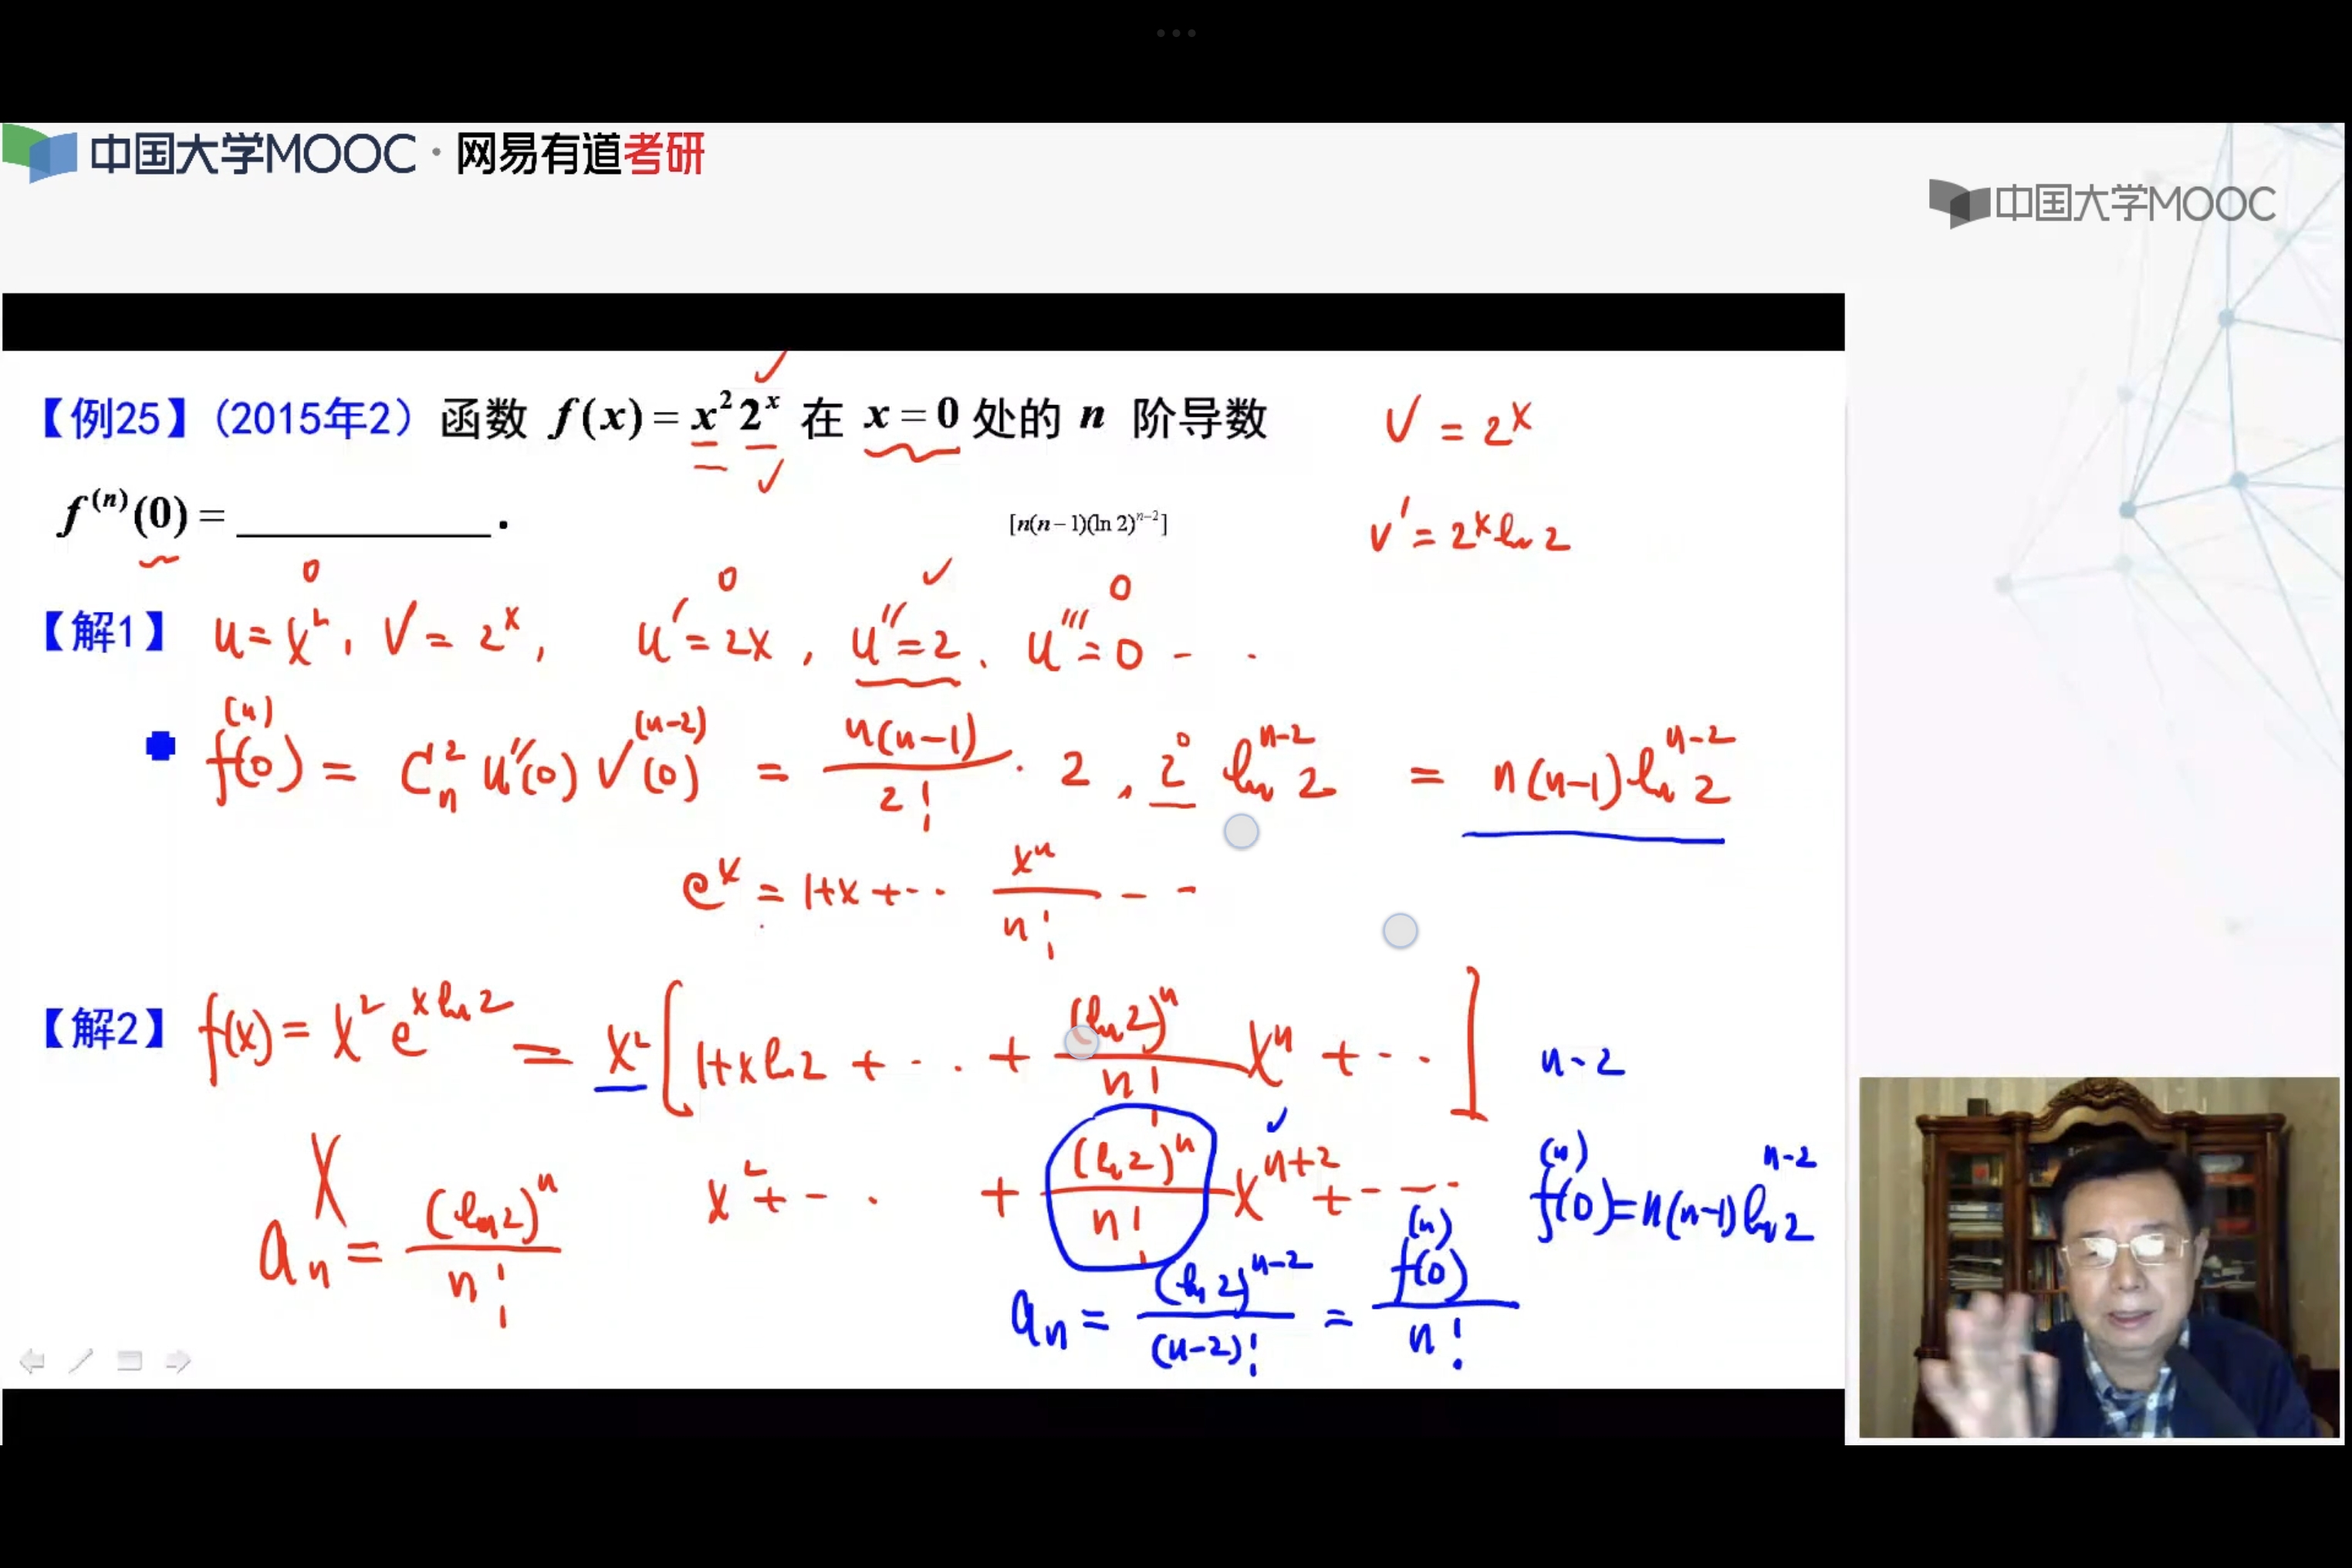 中国大学MOOC · 网易有道考研
中国大学MOOC
【例25】(2015年2) 函数 f(x) = x²2ˣ 在 x = 0 处的 n 阶导数
V = 2ˣ
f⁽ⁿ⁾(0) = ________ .
[n(n−1)(ln 2)ⁿ⁻²]
v' = 2ˣ ln 2
0 0 0
【解1】 u = x², V = 2ˣ, u' = 2x, u'' = 2, u''' = 0 - ·
f⁽ⁿ⁾(0) = Cₙ² u''(0) V⁽ⁿ⁻²⁾(0) = n(n−1)/2! · 2 · 2⁰ lnⁿ⁻² 2 = n(n−1) lnⁿ⁻² 2
eˣ = 1+x+·· xⁿ/n! - -
【解2】 f(x) = x² e^(x ln 2) = x² [1+x ln 2 + ·· · + (ln 2)ⁿ/n! xⁿ + ·· ·]
n-2
x² + - · + (ln 2)ⁿ/n! xⁿ⁺² + - - -
f⁽ⁿ⁾(0) = n(n−1) lnⁿ⁻² 2
X
aₙ = (ln 2)ⁿ/n!
aₙ = (ln 2)ⁿ⁻²/(n−2)! = f⁽ⁿ⁾(0)/n!